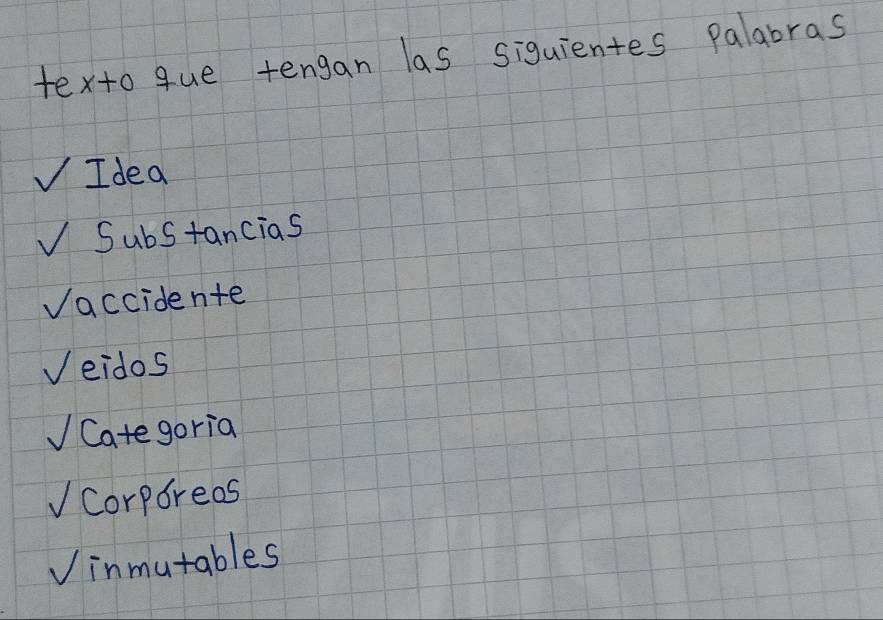 texto que tengan las siguientes palabras
✓ Idea
✓ Substancias
✓ accidente
✓ eidos
✓ Categoria
✓ Corpóreos
✓ inmutables